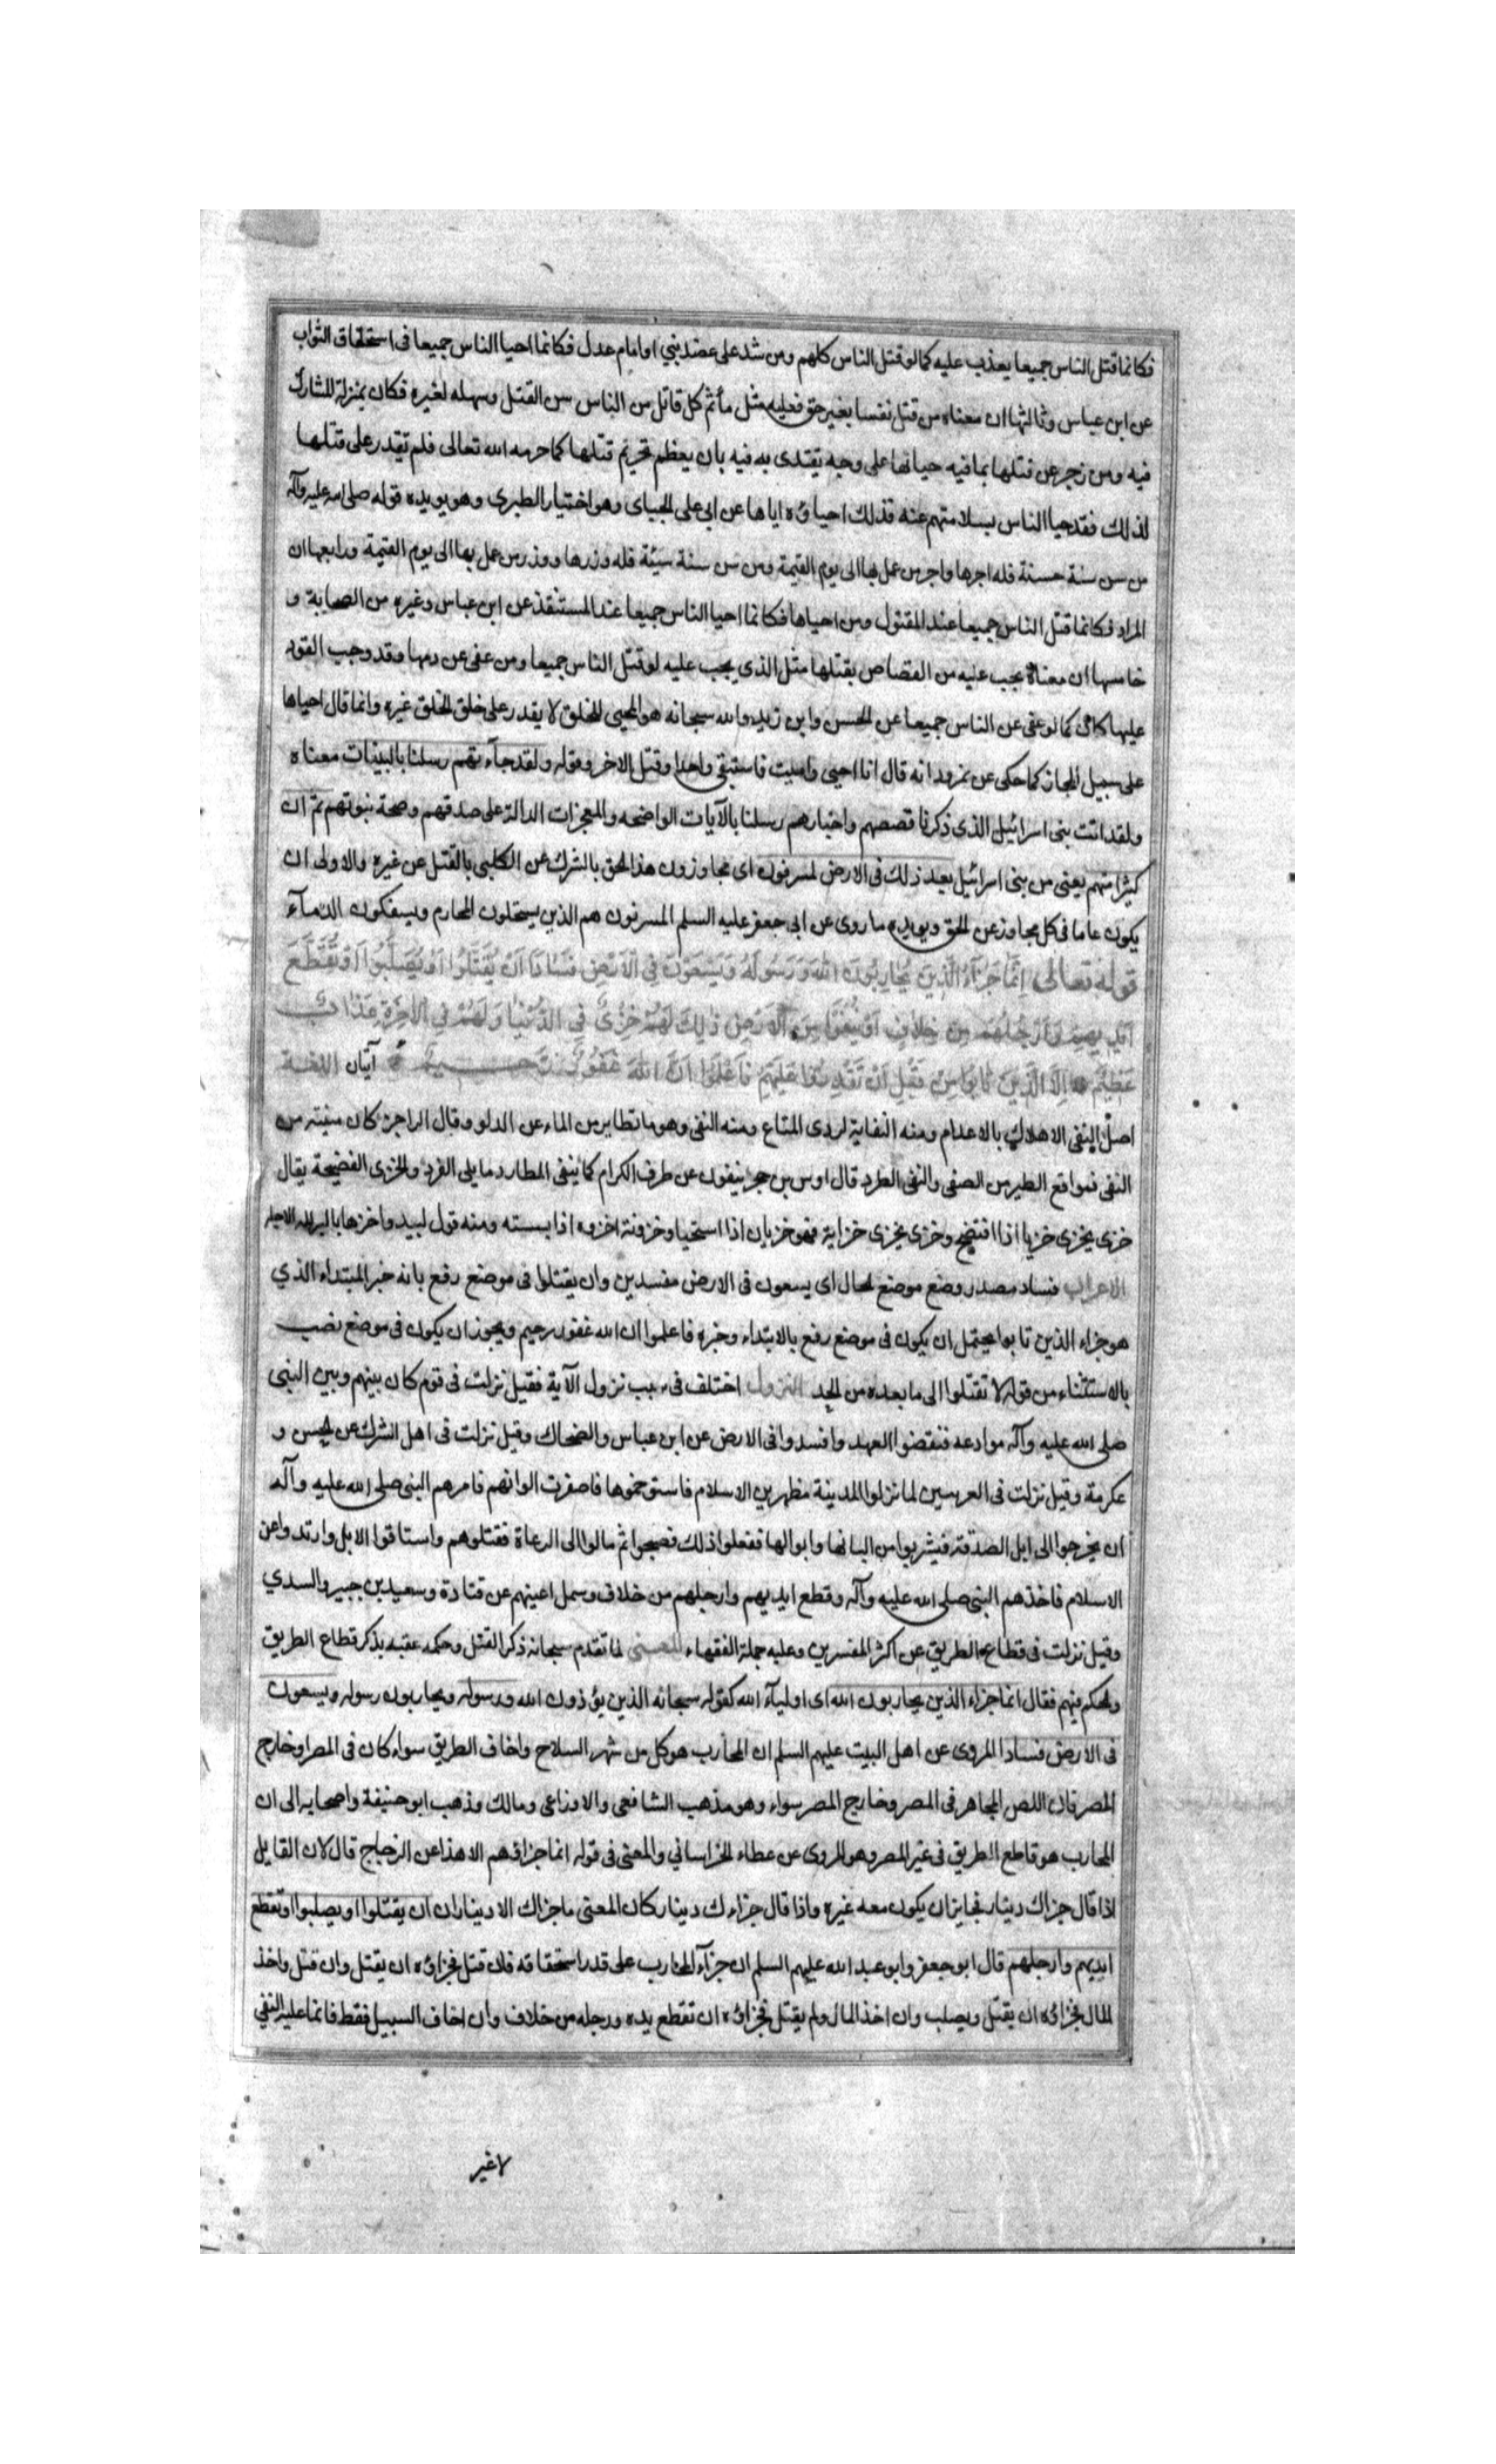 فكانما قتل الناس جميعا يعذب عليه كما لو قتل الناس كلهم ومن شد على عضد نبي او امام عدل فكانما احيا الناس جميعا في استحقاق الثواب
عن ابن عباس وثالثها ان معناه من قتل نفسا بغير حق فعليه مثل مأثم كل قاتل من الناس سن القتل وسهله لغيره فكان بمنزلة المشارك
فيه ومن زجر عن قتلها بما فيه حياتها على وجه يقتدى به فيه بان يعظم تحريم قتلها كما حرمه الله تعالى فلم يقدر على قتلها
لذلك فقد حيا الناس بسلامتهم عنه فذلك احياؤه اياها عن ابي على الجبياى وهو اختيار الطبرى وهو يويده قوله صلى الله عليه وآله
من سن سنة حسنة فله اجرها واجر من عمل بها الى يوم القيمة ومن سن سنة سيئة فله وزرها ووزر من عمل بها الى يوم القيمة ورابعها ان
المراد فكانما قتل الناس جميعا عند المقتول ومن احياها فكانما احيا الناس جميعا عند المستنقذ عن ابن عباس وغيره من الصحابة و
خامسها ان معناه يجب عليه من القصاص بقتلها مثل الذي يجب عليه لو قتل الناس جميعا ومن عفى عن دمها وقد وجب القود
عليها كان كما لو عفى عن الناس جميعا عن الحسن وابن زيد والله سبحانه هو المحيى للخلق لا يقدر على خلق الخلق غيره وانما قال احياها
على سبيل المجاز كما حكى عن نمرود انه قال انا احيى واميت فاستبقى واحدا وقتل الاخر وقوله ولقد جآءتهم رسلنا بالبينات معناه
ولقد اتت بنى اسرائيل الذى ذكرنا قصصهم واخبارهم رسلنا بالآيات الواضحه والمعجزات الدالة على صدقهم وصحة نبوتهم ثم ان
كثيرا منهم يعنى من بنى اسرائيل بعد ذلك فى الارض لمسرفون اى مجاوزون هذا الحق بالشرك عن الكلبى بالقتل عن غيره والاولى ان
يكون عاما فى كل مجاوز عن الحق ويويده ما روى عن ابى جعفر عليه السلم المسرفون هم الذين يستحلون المحارم ويسفكون الدمآء
قوله تعالى اِنَّمَا جَزَآءُ الَّذِينَ يُحَارِبُونَ اللهَ وَرَسُولَهُ وَيَسْعَوْنَ فِي الْاَرْضِ فَسَادًا اَنْ يُقَتَّلُوا اَوْ يُصَلَّبُوا اَوْ تُقَطَّعَ
اَيْدِيهِمْ وَاَرْجُلُهُمْ مِنْ خِلَافٍ اَوْ يُنْفَوْا مِنَ الْاَرْضِ ذٰلِكَ لَهُمْ خِزْىٌ فِي الدُّنْيَا وَلَهُمْ فِي الْآخِرَةِ عَذَابٌ
عَظِيمٌ اِلَّا الَّذِينَ تَابُوا مِنْ قَبْلِ اَنْ تَقْدِرُوا عَلَيْهِمْ فَاعْلَمُوا اَنَّ اللهَ غَفُورٌ رَحِيمٌ آيتان اللغة
اصل النفى الاهلاك بالاعدام ومنه النفاية لردى المتاع ومنه النفى وهو ما تطاير من الماء عن الدلو وقال الراجز كان متنيه من
النفى مواقع الطير من الصفى والنفى الطرد قال اوس بن حجر ينفون عن طرف الكرام كما ينفى المطارد ما يلى القرد والخزى الفضيحة يقال
خزى يخزى خزيا اذا افتضح وخزى يخزى خزاية فهو خزيان اذا استحيا وخزوته اخزوه اذا سسته ومنه قول لبيد واخزها بالبر لله الاجل
الاعراب فساد مصدر وضع موضع لحال اى يسعون فى الارض مفسدين وان يقتلوا فى موضع رفع بانه خبر المبتداء الذي
هو جزاء الذين تابوا يحتمل ان يكون فى موضع رفع بالابتداء وخبره فاعلموا ان الله غفور رحيم ويجوز ان يكون فى موضع نصب
بالاستثناء من قوله لا تقتلوا الى ما بعده من الحد النزول اختلف فى سبب نزول الآية فقيل نزلت فى قوم كان بينهم وبين النبى
صلى الله عليه وآله موادعه فنقضوا العهد وافسدوا فى الارض عن ابن عباس والضحاك وقيل نزلت فى اهل الشرك عن الحسن و
عكرمة وقيل نزلت فى العرنيين لما نزلوا المدينة مظهرين الاسلام فاستوخموها فاصفرت الوانهم فامرهم النبى صلى الله عليه وآله
ان يخرجوا الى ابل الصدقة فيشربوا من البانها وابوالها ففعلوا ذلك فصحوا ثم مالوا الى الرعاة فقتلوهم واستاقوا الابل وارتدوا عن
الاسلام فاخذهم النبى صلى الله عليه وآله وقطع ايديهم وارجلهم من خلاف وسمل اعينهم عن قتادة وسعيد بن جبير والسدي
وقيل نزلت فى قطاع الطريق عن اكثر المفسرين وعليه جملة الفقهاء المعنى لما تقدم سبحانه ذكر القتل وحكمه عقبه بذكر قطاع الطريق
والحكم فيهم فقال انما جزاء الذين يحاربون الله اى اوليآء الله كقوله سبحانه الذين يؤذون الله ورسوله ويحاربون رسوله ويسعون
فى الارض فسادا المروى عن اهل البيت عليهم السلم ان المحارب هو كل من شهر السلاح واخاف الطريق سواء كان فى المصر او خارج
المصر فان اللص المجاهر فى المصر وخارج المصر سواء وهو مذهب الشافعى والاوزاعى ومالك وذهب ابو حنيفة واصحابه الى ان
المحارب هو قاطع الطريق فى غير المصر وهو المروى عن عطاء الخراساني والمعنى فى قوله انما جزاؤهم الا هذا عن الزجاج قال لان القايل
اذا قال جزاك دينار فجايز ان يكون معه غيره واذا قال جزاءك دينار كان المعنى ما جزاك الا دينار ان ان يقتلوا او يصلبوا او تقطع
ايديهم وارجلهم قال ابو جعفر وابو عبد الله عليهم السلم ان جزآء المحارب على قدر استحقاقه فان قتل فجزاؤه ان يقتل وان قتل واخذ
المال فجزاؤه ان يقتل ويصلب وان اخذ المال ولم يقتل فجزاؤه ان تقطع يده ورجله من خلاف وان اخاف السبيل فقط فانما عليه النفي
لا غير